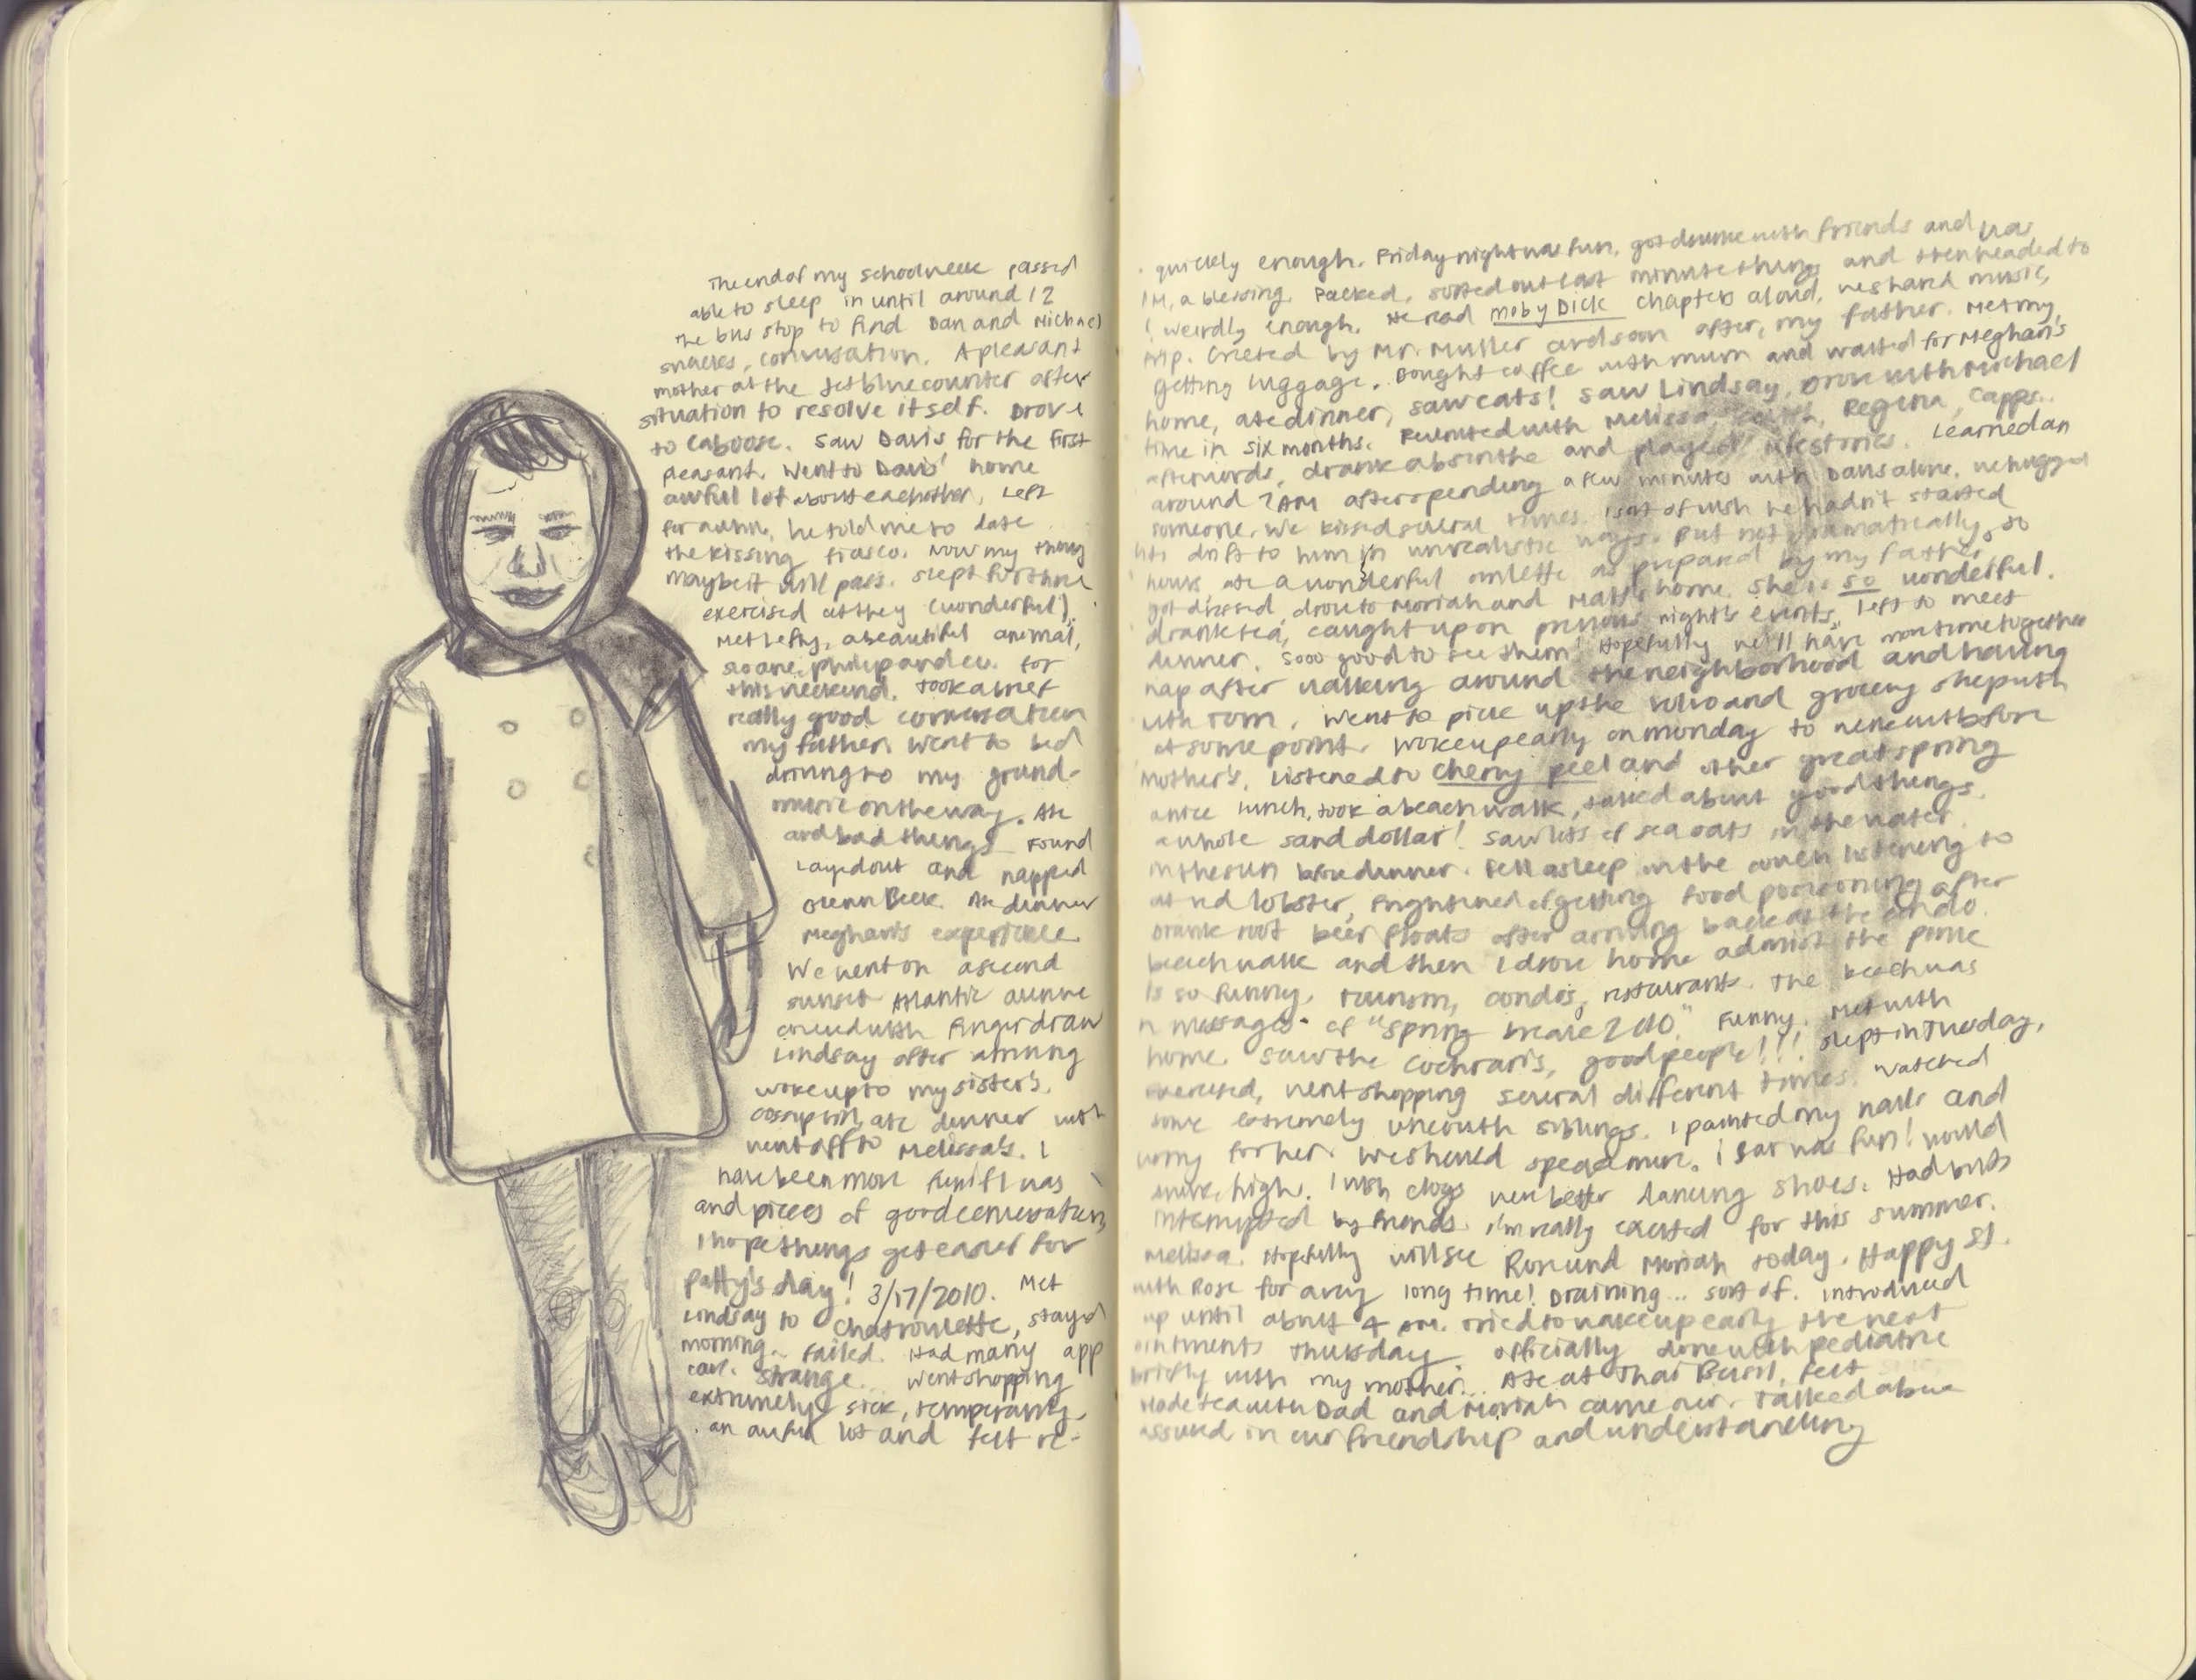 The end of my schoolweek passed quickly enough. Friday night was fun, got drunk with friends and was
able to sleep in until around 12 PM, a blessing. Packed, sorted out last minute things and then headed to
the bus stop to find Dan and Michael ! weirdly enough. He read Moby Dick chapters aloud, we shared music,
snacks, conversation. A pleasant trip. Greeted by Mr. Muller and soon after, my father. Met my
mother at the Jetblue counter after getting luggage. Bought coffee with mum and waited for Meghan's
situation to resolve itself. Drove home, ate dinner, saw cats! Saw Lindsay, Drove with Michael
to Caboose. Saw Davis for the first time in six months. Reunited with Melissa Regina, Capps..
pleasant. Went to Davis' home afterwords, drank absinthe and played lifestories. Learned an
awful lot about eachother. Left around 2AM after spending a few minutes with Davis alone. We hugged
for awhile, he told me to date someone. We kissed several times. I sort of wish he hadn't started
the kissing fiasco. Now my thoug hts drift to him in unrealistic ways. But not dramatically, so
maybe it will pass. Slept for three hours ate a wonderful omlette as prepared by my father,
exercised at the y (wonderful). got dressed, drove to Moriah and Matt's home. She is so wonderful.
Met Lefty, a beautiful animal, drank tea, caught up on previous night's events. Left to meet
Sloane, Philip and co. for dinner. Sooo good to see them! Hopefully we'll have more time together
this weekend. Took a brief nap after walking around the neighborhood and having
really good conversation with Tom. Went to pick up the volvo and grocery shop with
my father. Went to bed at some point. Woke up early on monday to before
driving to my grand- mother's. Listened to Cherry Peel and other great spring
music on the way. Ate a nice lunch, took a beach walk, talked about good things
and bad things. Found a whole sand dollar! Saw lots of sea oats in the water.
Layed out and napped in the sun before dinner. Fell asleep on the couch listening to
Glenn Beck. Ate dinner at red lobster, frightened of getting food poisoning after
Meghan's experience. Drank root beer floats after arriving back at the condo.
We went on a second beach walk and then I drove home admist the pink
sunset. Atlantic avenue is so funny, tourism, condos, restaurants. The beach was
covered with finger draw n messages of "Spring break 2010." Funny. Met with
Lindsay after arriving home. Saw the Cochrans, good people!!! Slept in Tuesday,
woke up to my sister's. exercised, went shopping several different times. Watched
Gossip girl, ate dinner with some extremely uncouth siblings. I painted my nails and
went off to Melissa's. I worry for her. We should spend more. I sat was fun! would
have been more fun if I was more, high. I wish clogs were better dancing shoes. Had bits
and pieces of good conversation, interrupted by friends. I'm really excited for this summer.
I hope things get easier for Melissa. Hopefully will see Rose and Moriah today. Happy St.
Patty's day! 3/17/2010. Met with Rose for a very long time! Draining... sort of. Introduced
Lindsay to Chatroulette, stayed up until about 4 am. Tried to wake up early the next
morning. failed. Had many app ointments Thursday officially done with pediatric
care. strange... Went shopping briefly with my mother... Ate at Thai Basil, felt
extremely sick, temporarily. Made tea with Dad and Moriah came over. Talked about
an awful lot and felt re- assured in our friendship and understanding